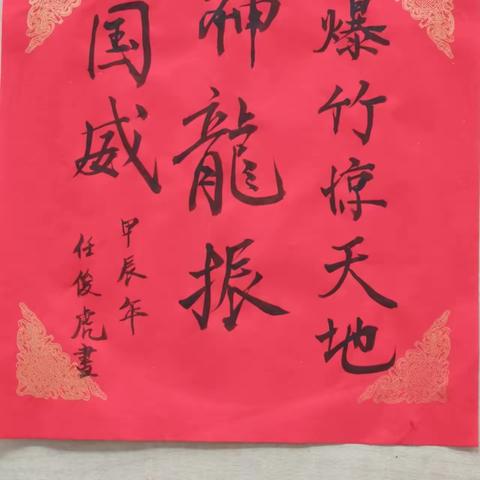 爆竹惊天地
神龍振
国威
甲辰年
任俊虎書